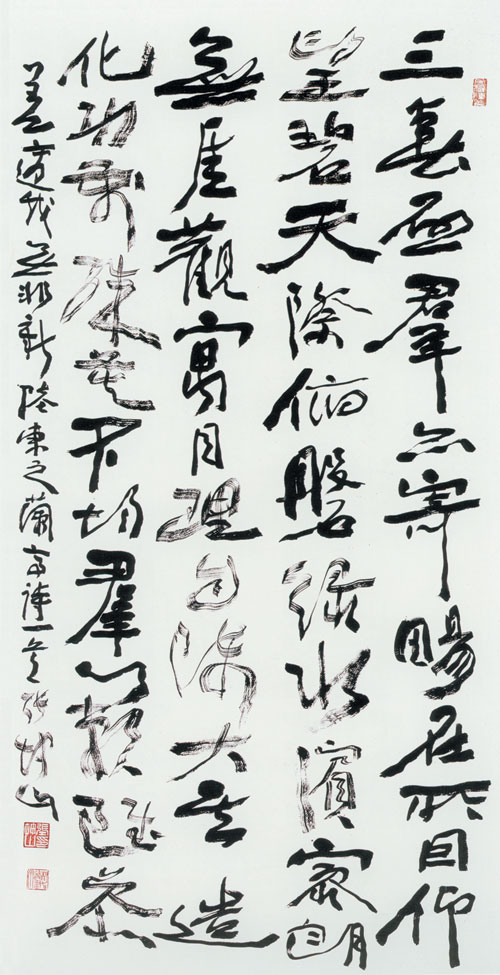 三春啟羣品寄暢在所因仰
望碧天際俯磐綠水濱寥朗
無厓觀寓目理自陳大矣造
化功萬殊莫不均羣籟雖參
差適我無非新 陸柬之蘭亭詩一首 張坤山